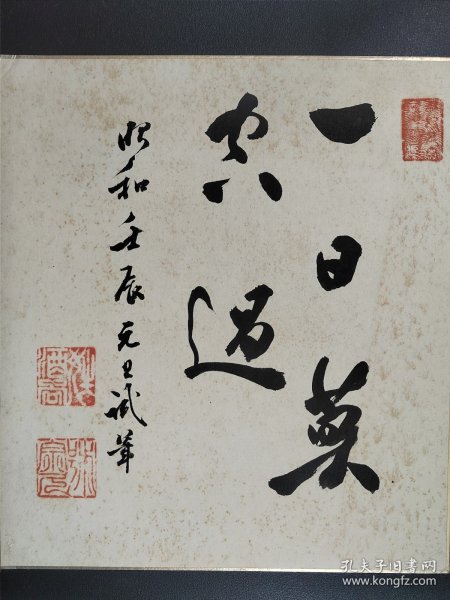 一日莫
空過
昭和壬辰元旦試筆
孔夫子旧书网
www.kongfz.com